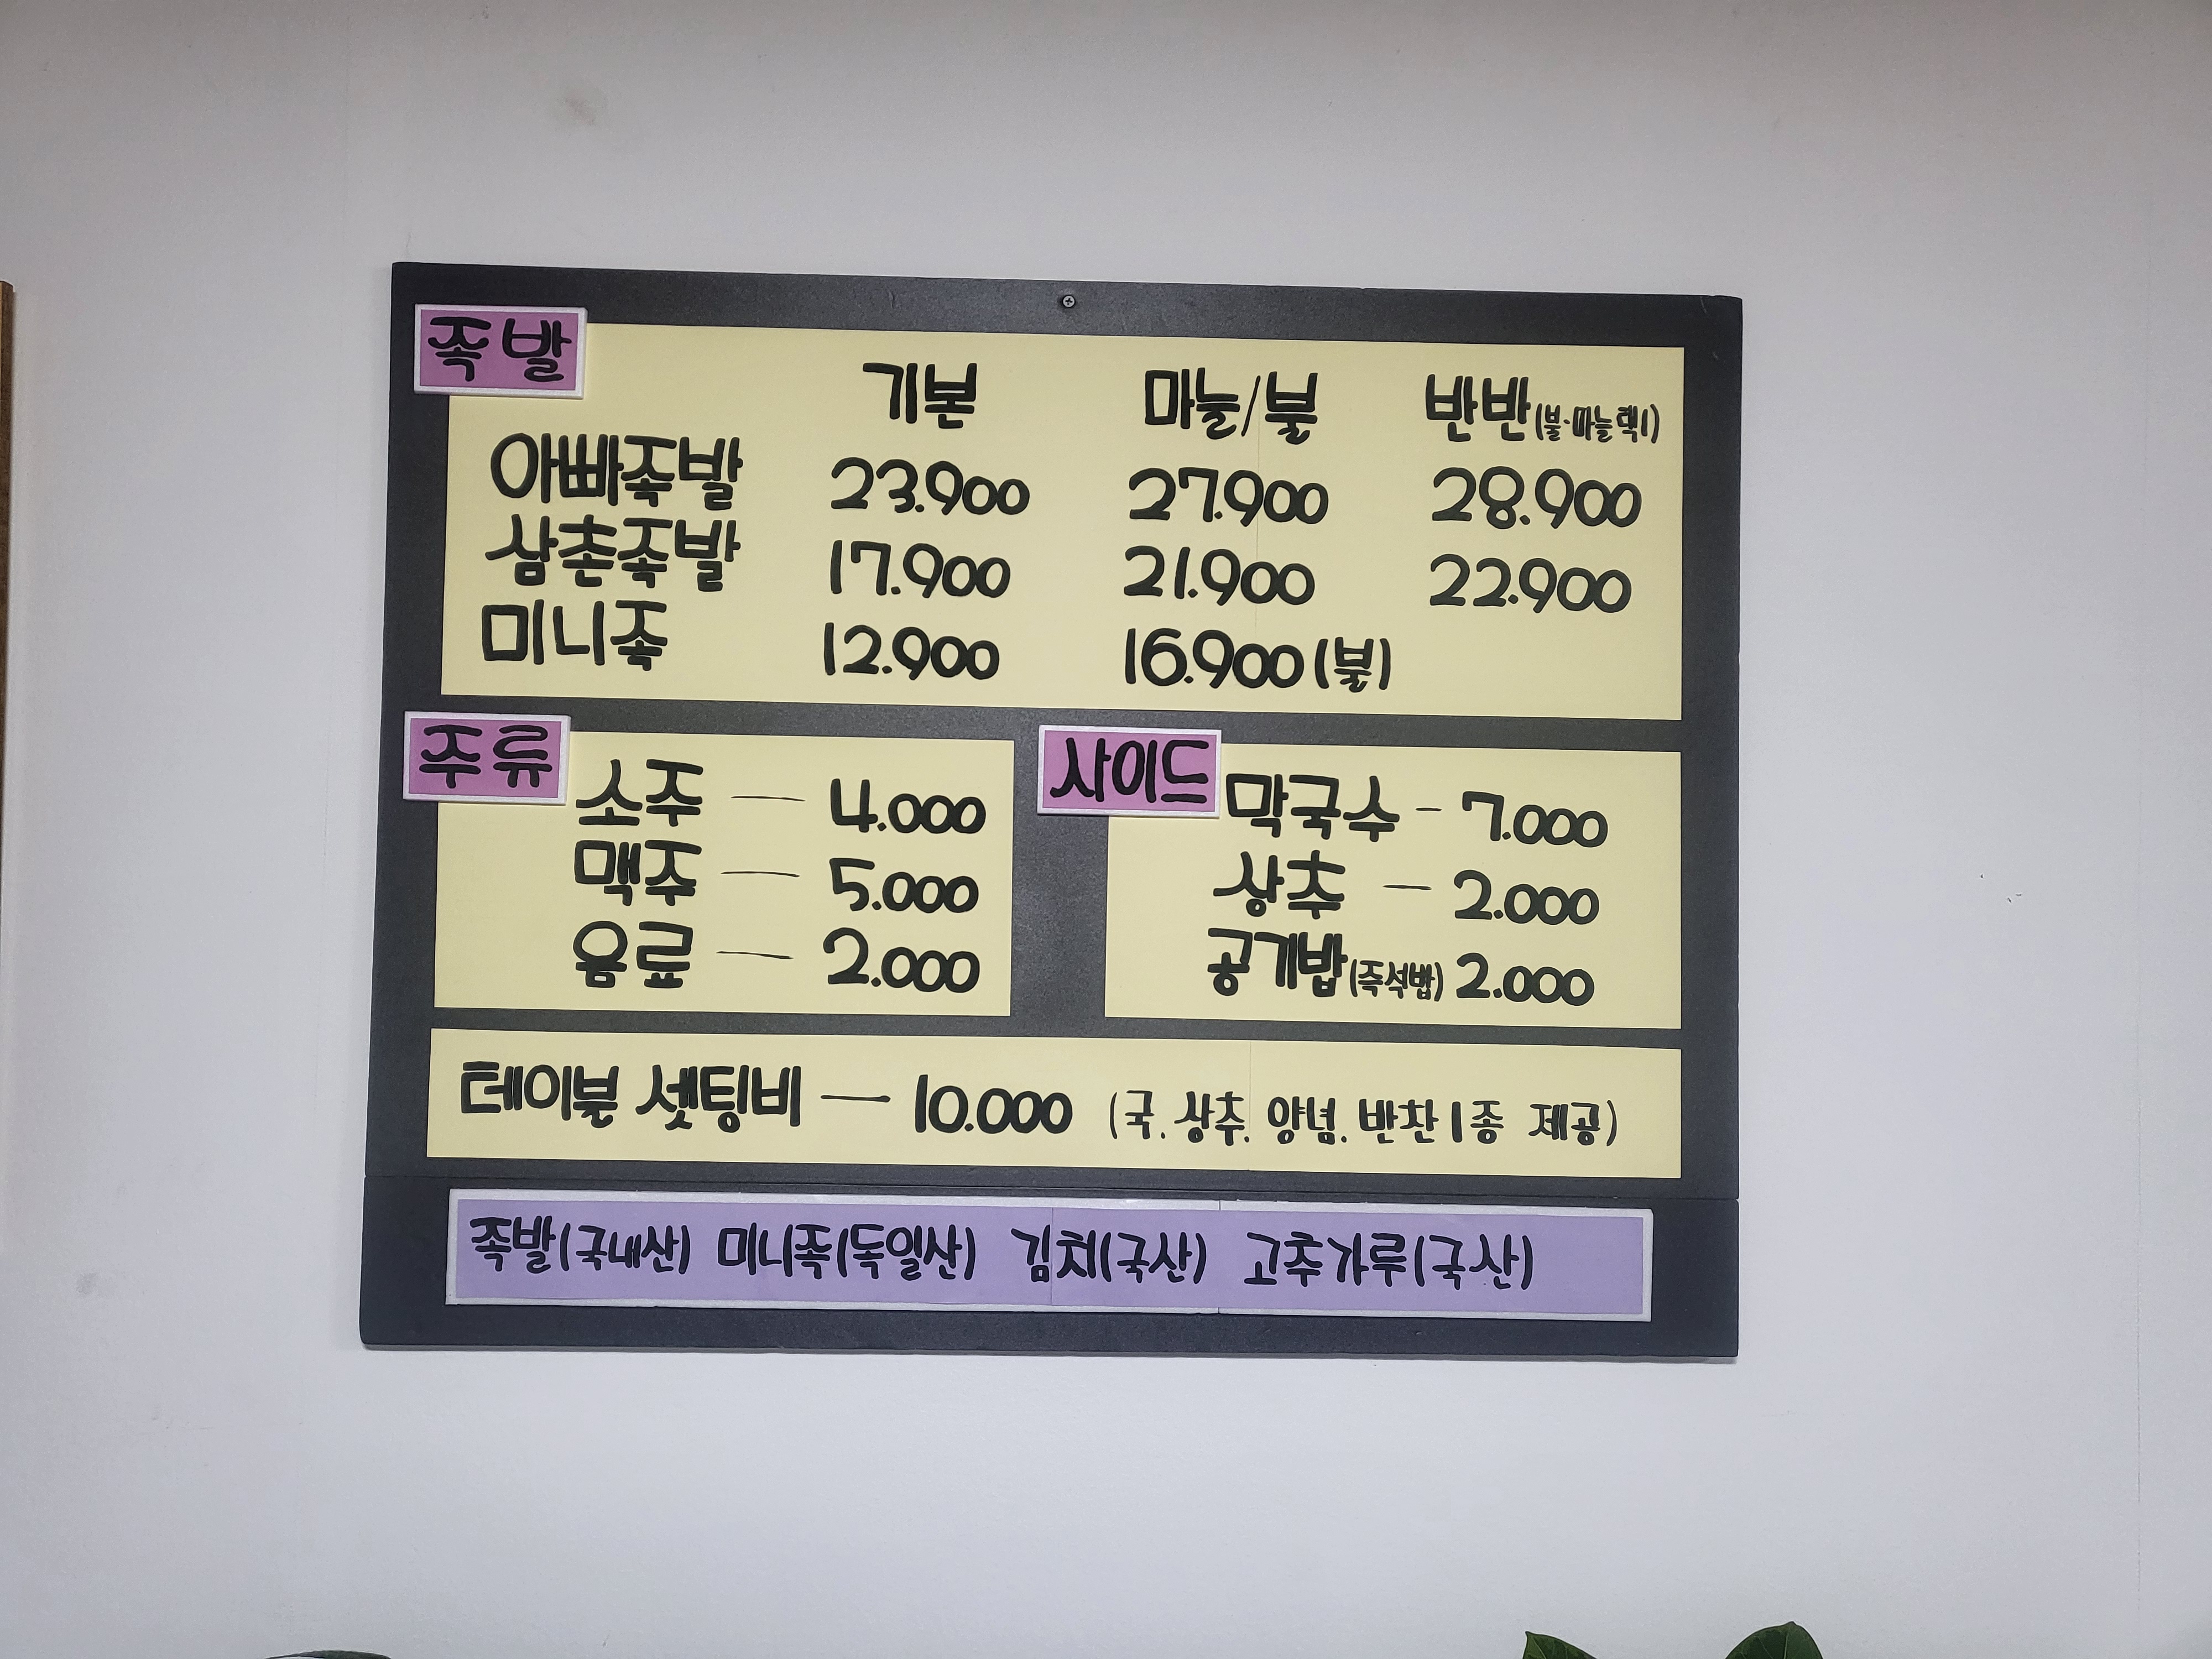 족발
기본 마늘/불 반반(불·마늘 택1)
아빠족발 23.900 27.900 28.900
삼촌족발 17.900 21.900 22.900
미니족 12.900 16.900(불)
주류
소주 — 4.000
맥주 — 5.000
음료 — 2.000
사이드
막국수 - 7.000
상추 - 2.000
공기밥(즉석밥) 2.000
테이블 셋팅비 — 10.000 (국. 상추. 양념. 반찬1종 제공)
족발(국내산) 미니족(독일산) 김치(국산) 고추가루(국산)